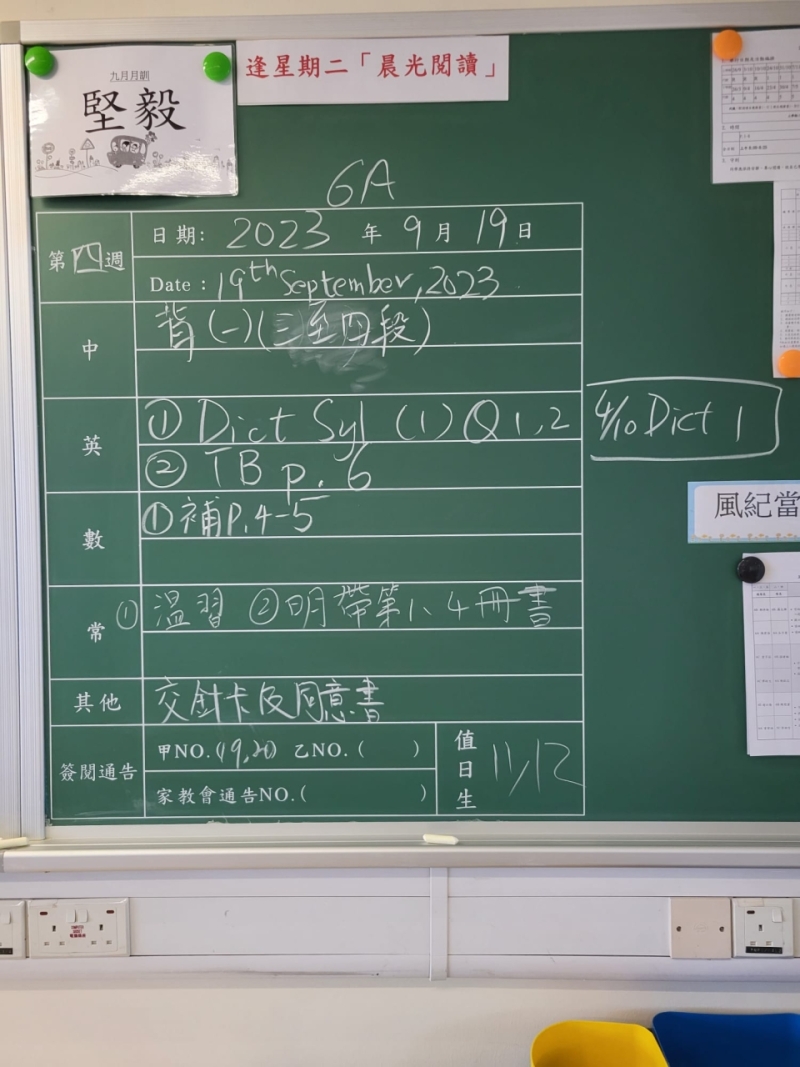 九月月訓
堅毅
逢星期二「晨光閱讀」
6A
第四週
日期: 2023 年 9 月 19 日
Date : 19th September, 2023
中
背(一)(三至四段)
英
① Dict Syl (1) Q1,2
② TB p. 6
4/10 Dict 1
數
① 補P.4-5
常
① 溫習 ②明帶第1、4冊書
其他
交針卡及同意書
簽閱通告
甲NO.(19,20) 乙NO.( )
家教會通告NO.( )
值日生
11/12
風紀當